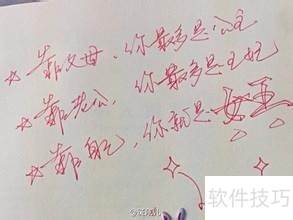 ☆ 靠父母,你最多是公主
☆ 靠老公,你最多是王妃
☆ 靠自己,你就是女王
软件技巧